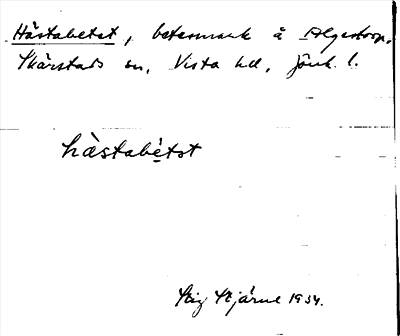 Hästabetet, betesmark å Algustorp,
Skärstads sn, Vista hd, Jönk. l.
hàstabe̍tət
Stig Stjärne 1934.